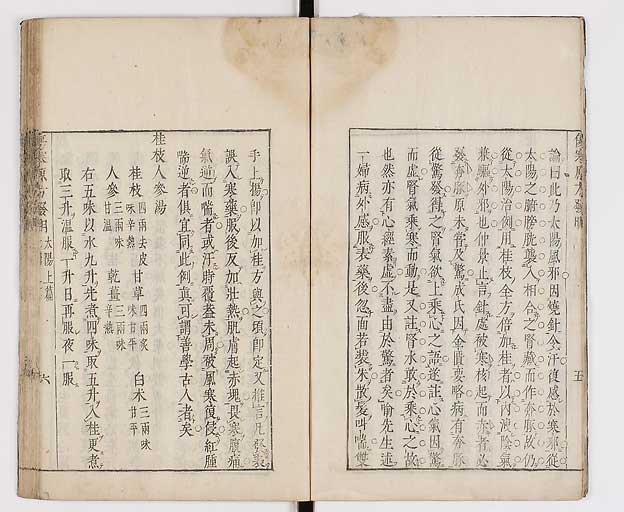 論曰此乃太陽風邪因燒針令汗復感於寒邪從
太陽之府膀胱襲入相合之腎臟而作奔豚故仍
從太陽治例用桂枝全方倍加桂者以內泄陰氣
兼驅外邪也仲景止言針處被寒核起而赤者必
發奔豚原未嘗及驚成氏因金匱要略病有奔豚
從驚發得之腎氣欲上乘心之語遂註心氣因驚
而虛腎氣乘寒而動是又註腎水敢於乘心之故
也然亦有心經素虛不盡由於驚者矣喻先生述
一婦病外感服表藥後忽面若裝朱散髮叫喘雙
手上揚即以加桂方與之頃即定又推言凡發表
誤入寒藥服後反加壯熱肌膚起赤塊畏寒腹痛
氣逆而喘者或汗時覆蓋未周被風寒復侵紅腫
喘逆者俱宜同此例真可謂善學古人者矣
桂枝人參湯
桂枝四兩去皮味辛熱 甘草四兩炙味甘平 白朮三兩味甘平
人參三兩味甘溫 乾薑三兩味辛熱
右五味以水九升先煮四味取五升入桂更煮
取三升溫服一升日再服夜一服
太陽上篇
五
六